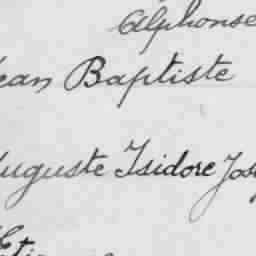 Alphonse
Jean Baptiste
Auguste Isidore Jos
Eti